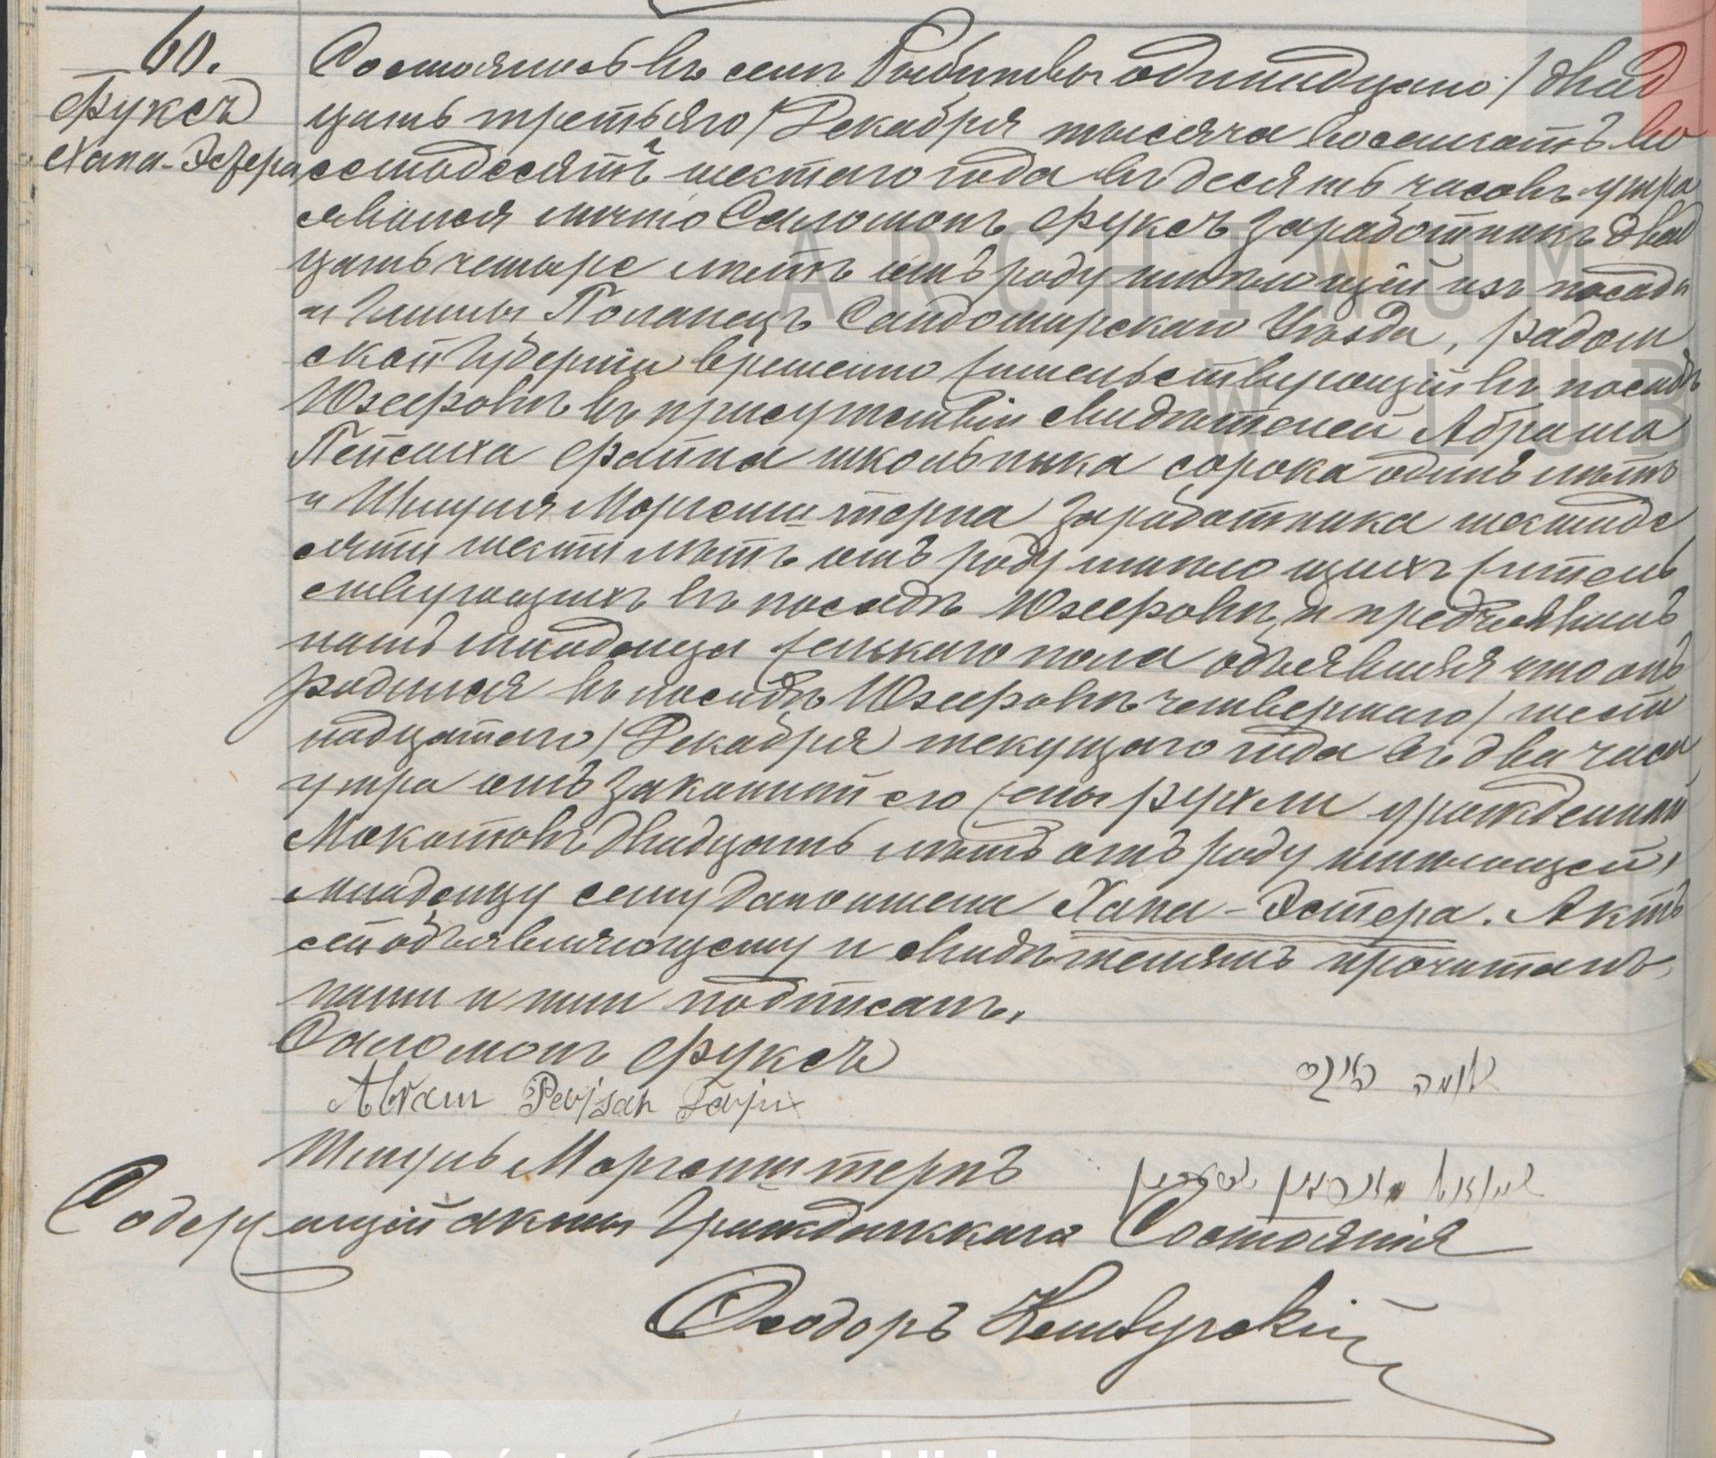 60.
Фуксъ
Хана-Эсфера
Состоялось въ селѣ Рыбитвы одинадцатаго / двад
цать третьяго / Декабря тысяча восемьсотъ во
семьдесятъ шестаго года въ десять часовъ утра
явился лично Саломонъ Фуксъ заработникъ двад
цать четыре лѣтъ отъ роду имѣющій изъ посада
и Гмины Поланецъ Сандомирскаго Уѣзда, Радом
ской Губерніи временно жительствующій въ посадѣ
Юзефовѣ въ присутствіи свидѣтелей Абрама
Пейсаха Файна школьника сорока одинъ лѣтъ
и Шмуля Моргенштерна заработника шестиде
сяти шести лѣтъ отъ роду имѣющихъ житель
ствующихъ въ посадѣ Юзефовѣ и предъявилъ
намъ младенца женскаго пола объявляя что онъ
родился въ посадѣ Юзефовѣ четвертаго / шест
надцатаго / Декабря текущаго года въ два часа
утра отъ законной его жены Рухли урожденной
двадцать лѣтъ отъ роду имѣющей,
младенцу сему дано имена Хана-Эстера. Актъ
сей объявляющему и свидѣтелямъ прочитанъ,
нами и ими подписанъ.
Саломонъ Фуксъ
Abram Pejsah Fajn
Шмуль Моргенштернъ
Содержащій акты Гражданскаго Состоянія
Ѳеодоръ
ARCHIWUM
W LUB